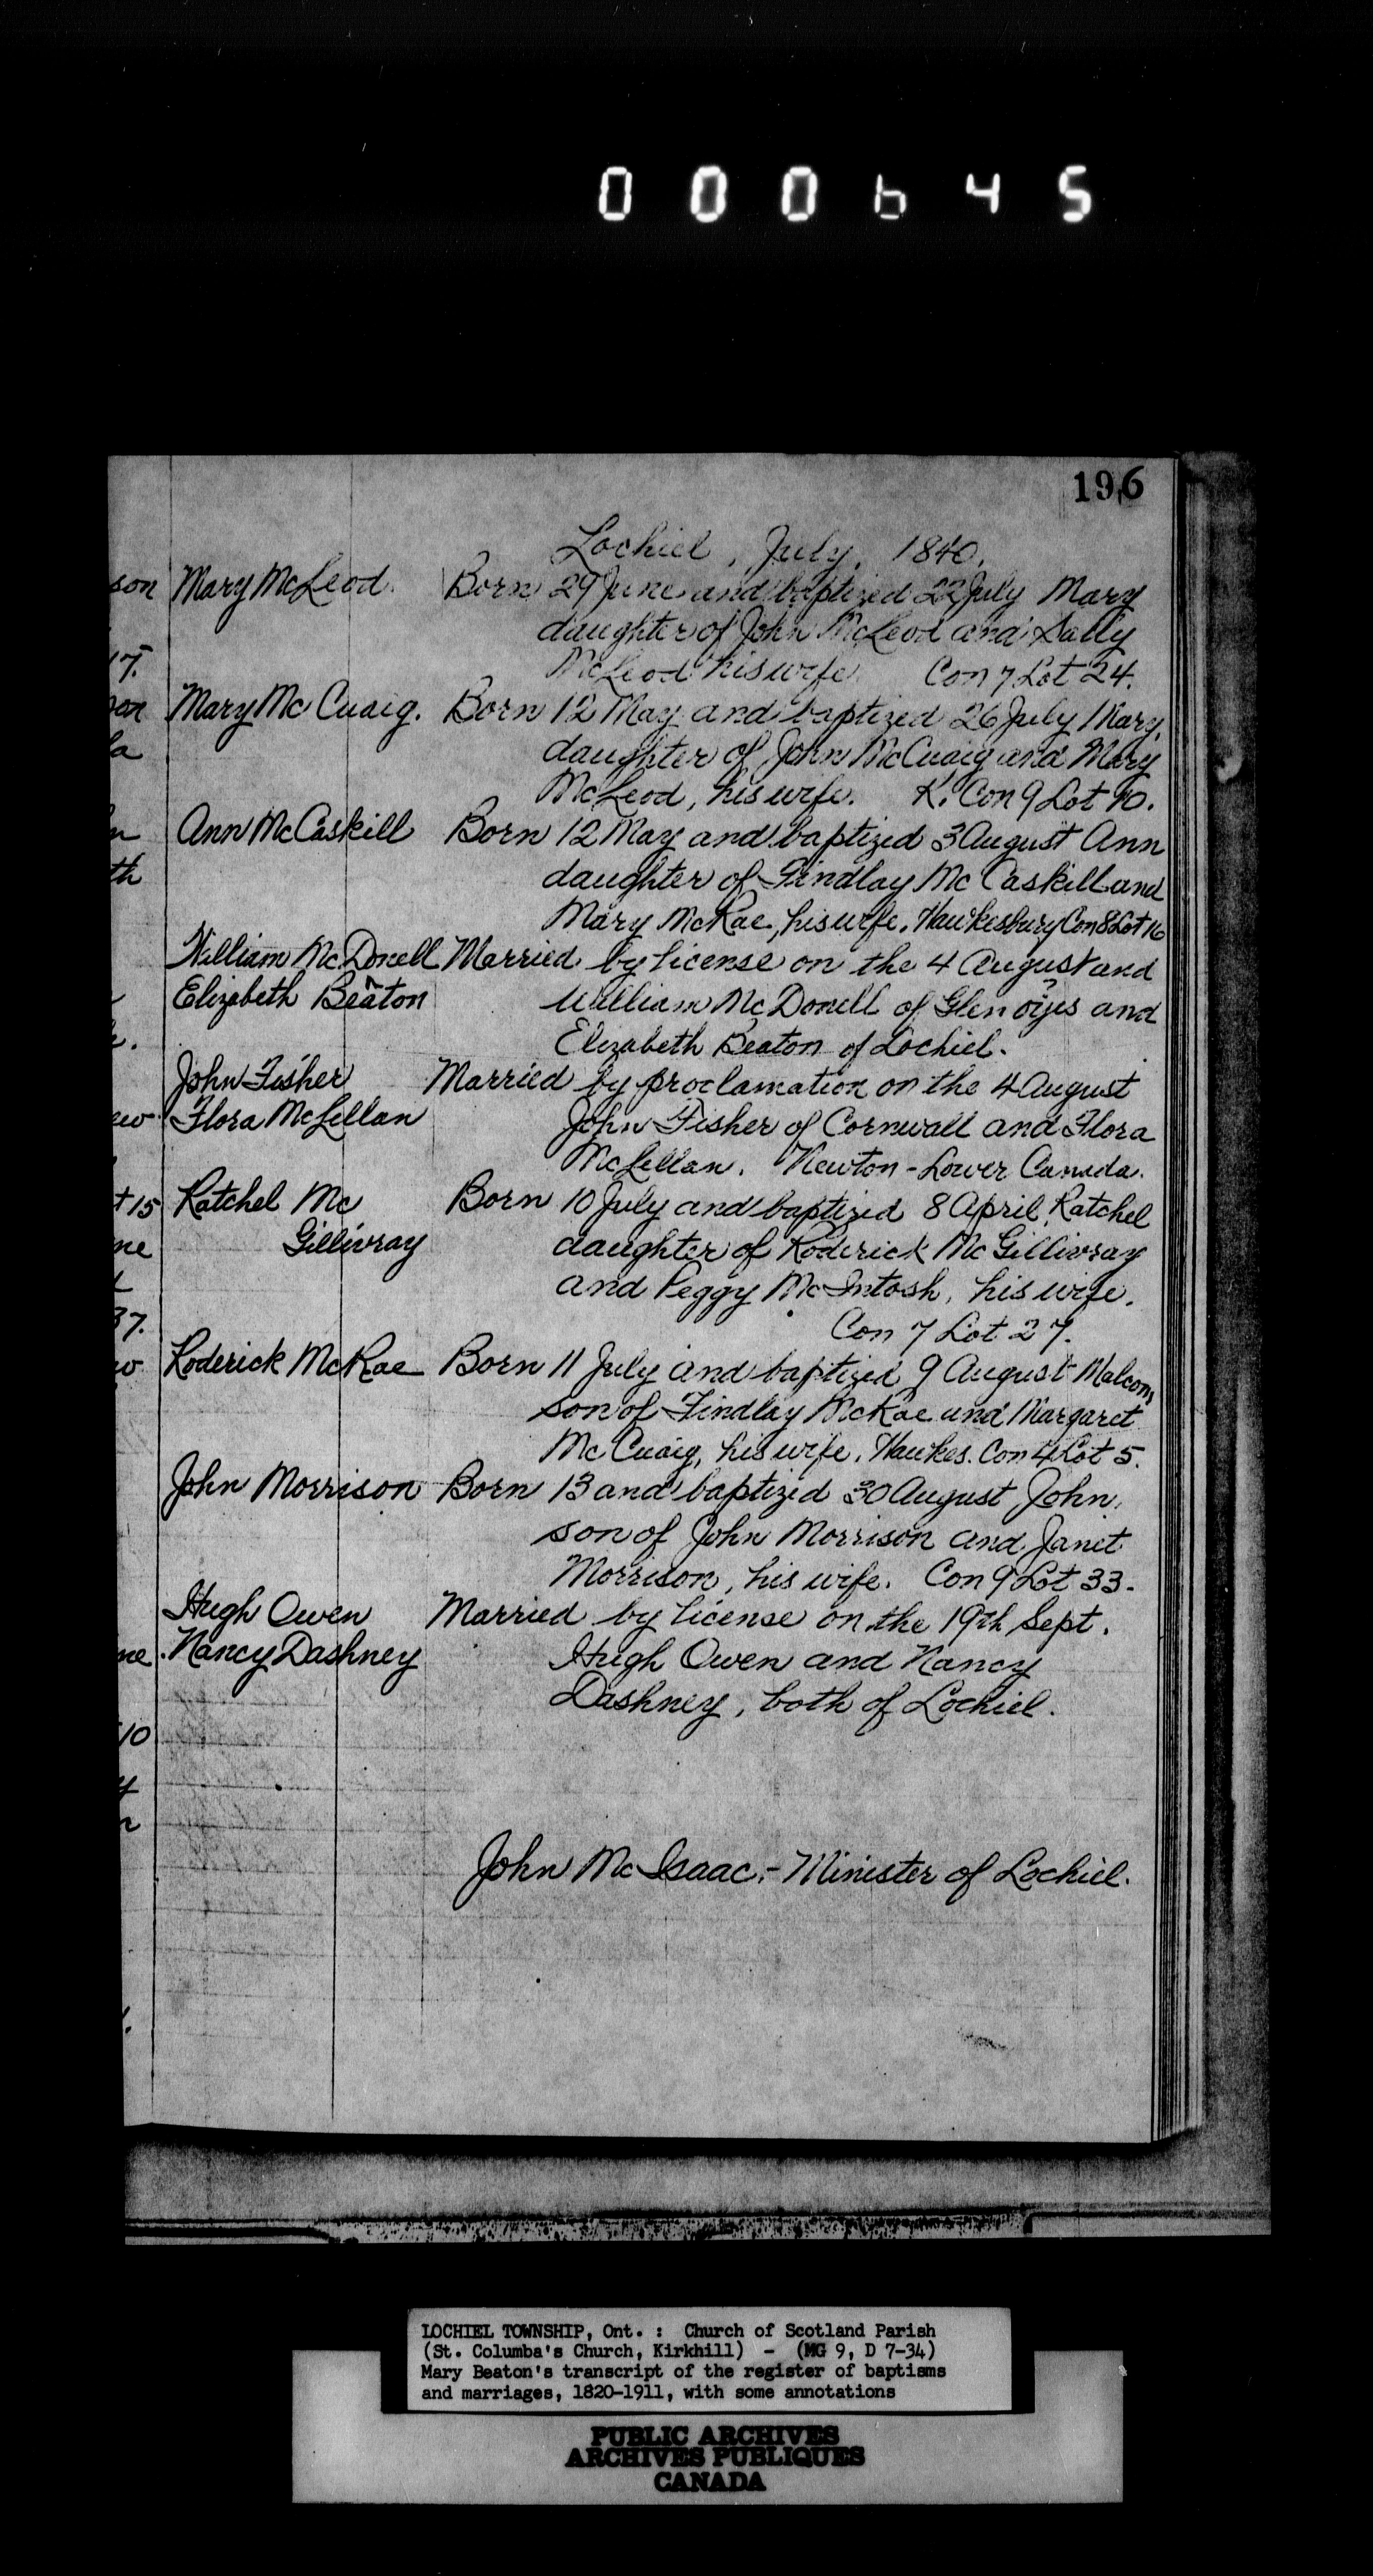 000645
196
Lochiel, July, 1840.
son Mary McLeod. Born 29 June and baptized 22 July Mary
daughter of John McLeod and Sally
17. McLeod his wife. Con 7 Lot 24.
Mary McCuaig. Born 12 May and baptized 26 July Mary,
la daughter of John McCuaig and Mary
McLeod, his wife. K. Con 9 Lot 10.
Ann McCaskill Born 12 May and baptized 3 August Ann
th daughter of Findlay McCaskill and
Mary McRae, his wife. Hawkesbury Con 8 Lot 16
William McDonell Married by license on the 4 August and
Elizabeth Beaton William McDonell of Glen and
Elizabeth Beaton of Lochiel.
John Fisher Married by proclamation on the 4 August
ew Flora McLellan John Fisher of Cornwall and Flora
McLellan. Newton - Lower Canada.
t 15 Ratchel Mc Born 10 July and baptized 8 April Ratchel
ne Gillivray daughter of Roderick McGillivray
and Peggy McIntosh, his wife.
37. Con 7 Lot 27.
Roderick McRae Born 11 July and baptized 9 August Malcom,
son of Findlay McRae and Margaret
McCuaig, his wife. Hawkes. Con 4 Lot 5.
John Morrison Born 13 and baptized 30 August John,
son of John Morrison and Janet
Morrison, his wife. Con 9 Lot 33.
Hugh Owen Married by license on the 19th Sept.
ne. Nancy Dashney Hugh Owen and Nancy
Dashney, both of Lochiel.
10
4
John McIsaac.- Minister of Lochiel.
LOCHIEL TOWNSHIP, Ont. : Church of Scotland Parish
(St. Columba's Church, Kirkhill) - (MG 9, D 7-34)
Mary Beaton's transcript of the register of baptisms
and marriages, 1820-1911, with some annotations
PUBLIC ARCHIVES
ARCHIVES PUBLIQUES
CANADA